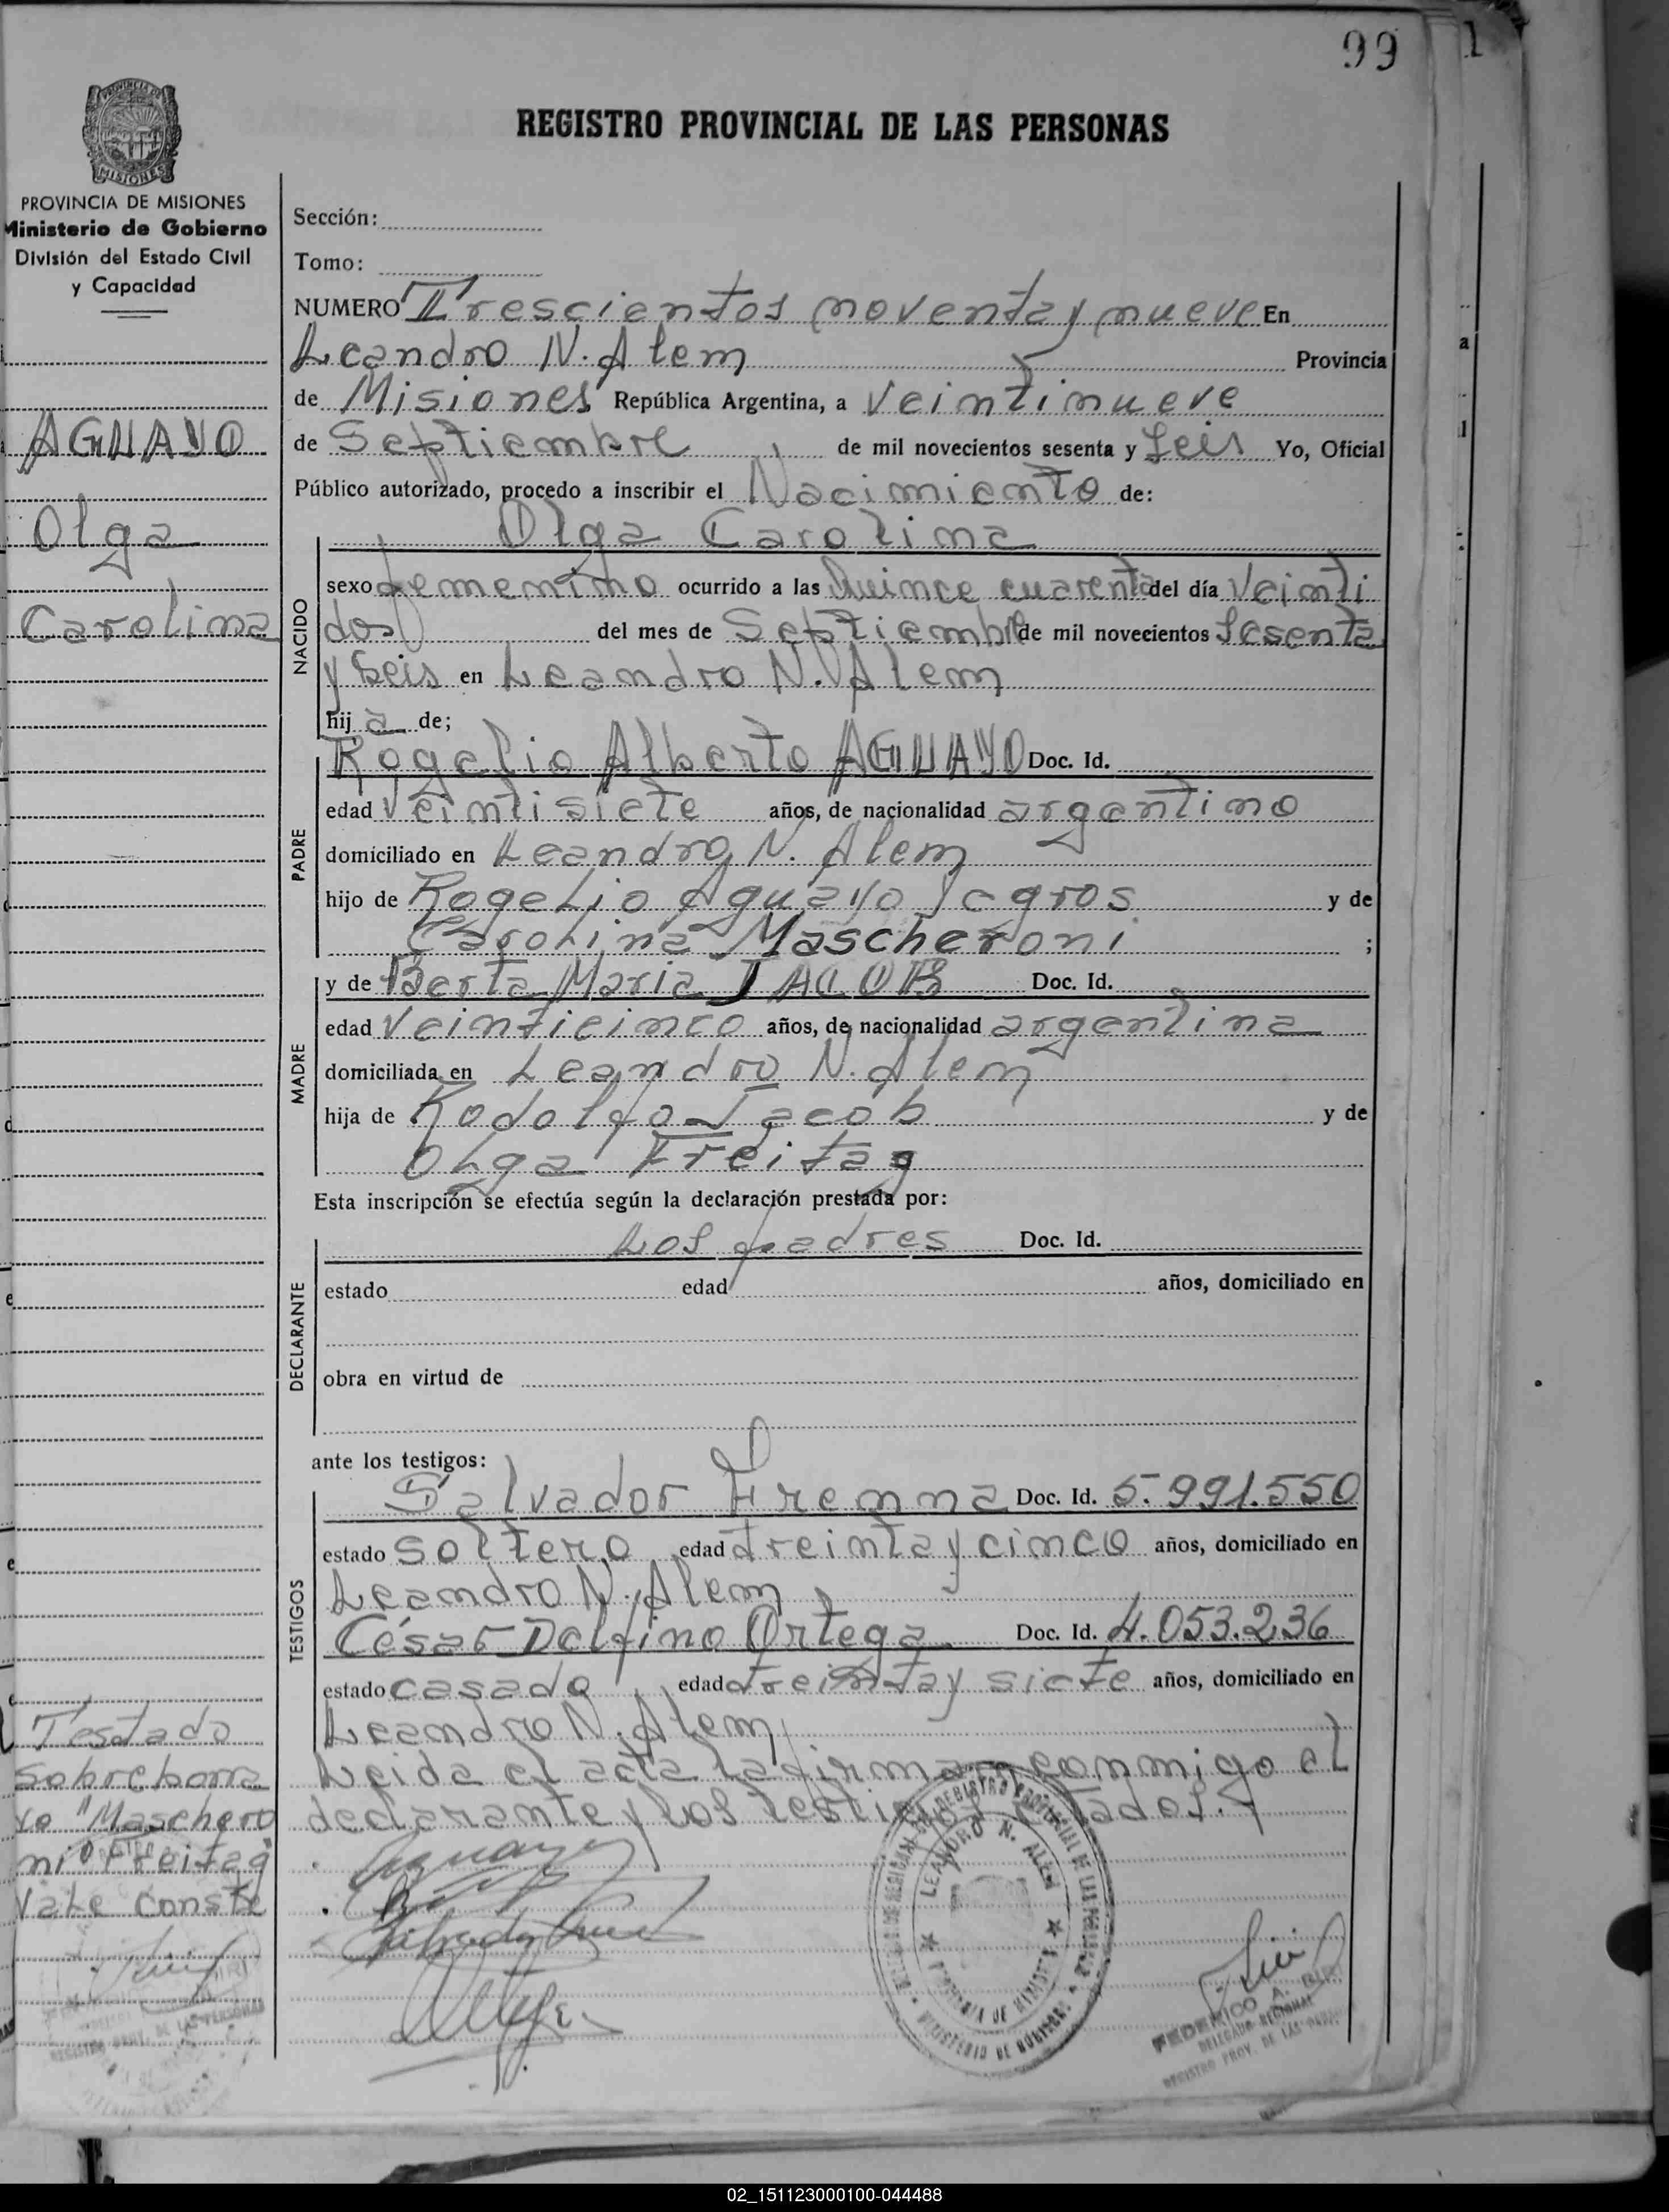 99
1
REGISTRO PROVINCIAL DE LAS PERSONAS
MISIONES
PROVINCIA DE MISIONES
Ministerio de Gobierno
División del Estado Civil
y Capacidad
AGUAYO
Olga
Carolina
Sección:
Tomo:
NUMERO Trescientos noventa y nueve En
Leandro N. Alem Provincia
de Misiones República Argentina, a veintinueve
de Septiembre de mil novecientos sesenta y Seis Yo, Oficial
Público autorizado, procedo a inscribir el Nacimiento de:
Olga Carolina
NACIDO
sexo femenino ocurrido a las Quince cuarenta del día Veinti
dos del mes de Septiembre de mil novecientos Sesenta
y Seis en Leandro N. Alem
hij a de;
PADRE
Rogelio Alberto AGUAYO Doc. Id.
edad Veintisiete años, de nacionalidad argentino
domiciliado en Leandro N. Alem
hijo de Rogelio Aguayo y de
Carolina Mascheroni ;
MADRE
y de Berta Maria JACOB Doc. Id.
edad Veinticinco años, de nacionalidad argentina
domiciliada en Leandro N. Alem
hija de Rodolfo Jacob y de
Olga Freitag
Esta inscripción se efectúa según la declaración prestada por:
DECLARANTE
Los padres Doc. Id.
estado edad años, domiciliado en
obra en virtud de
ante los testigos:
TESTIGOS
Salvador Doc. Id. 5.991.550
estado Soltero edad treinta y cinco años, domiciliado en
Leandro N. Alem
César Delfino Ortega Doc. Id. 4.053.236
estado casado edad treinta y siete años, domiciliado en
Leandro N. Alem
Leida el acta la firman conmigo el
declarante y los testigos citados.
Testado
sobreborra
do "Maschero
ni" Freitag"
Vale Conste
LEANDRO N. ALEM
PROVINCIA DE MISIONES
MINISTERIO DE GOBIERNO
FEDERICO A.
DELEGADO REGIONAL
REGISTRO PROV. DE LAS PERSONAS
02_151123000100-044488